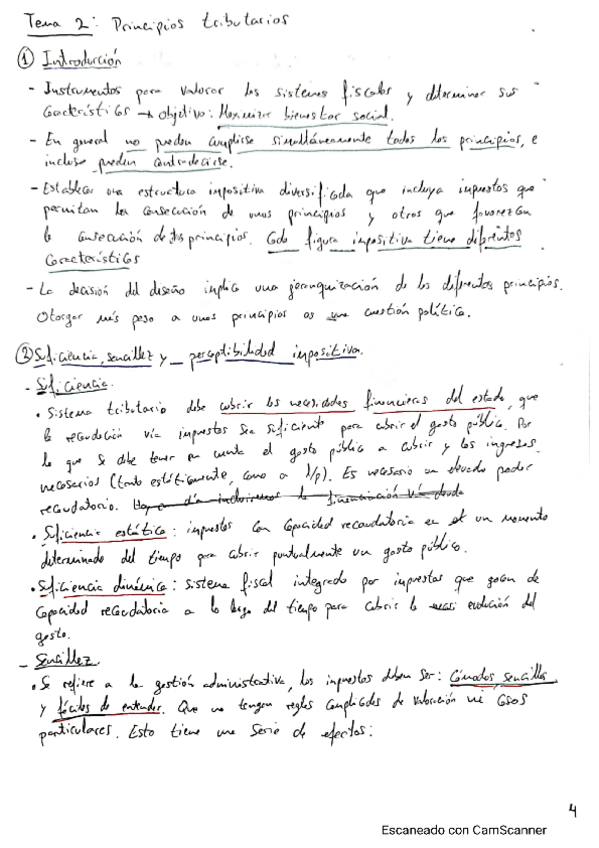 Tema 2: Principios tributarios
① Introducción
- Instrumentos para valorar los sistemas fiscales y determinar sus
características → objetivo: Maximizar bienestar social.
- En general no pueden cumplirse simultáneamente todos los principios, e
incluso pueden contradecirse.
- Establecer una estructura impositiva diversificada que incluya impuestos que
permitan la consecución de unos principios y otros que favorezcan
la consecución de principios. Cada figura impositiva tiene diferentes
características
- La decisión del diseño implica una jerarquización de los diferentes principios.
Otorgar más peso a unos principios es una cuestión política.
② Suficiencia, sencillez y perceptibilidad impositiva.
- Suficiencia.
• Sistema tributario debe cubrir las necesidades financieras del estado, que
la recaudación vía impuestos sea suficiente para cubrir el gasto público. Por
lo que se debe tener en cuenta el gasto público a cubrir y los ingresos
necesarios (tanto estáticamente, como a l/p). Es necesario un elevado poder
recaudatorio. Hoy en día incluiremos la financiación vía deuda
• Suficiencia estática: impuestos con capacidad recaudatoria en el un momento
determinado del tiempo para cubrir puntualmente un gasto público.
• Suficiencia dinámica: sistema fiscal integrado por impuestos que gocen de
capacidad recaudatoria a lo largo del tiempo para cubrir la evolución del
gasto.
- Sencillez.
• Se refiere a la gestión administrativa, los impuestos deben ser: cómodos, sencillos
y fáciles de entender. Que no tengan reglas complicadas de valoración ni casos
particulares. Esto tiene una serie de efectos:
4
Escaneado con CamScanner